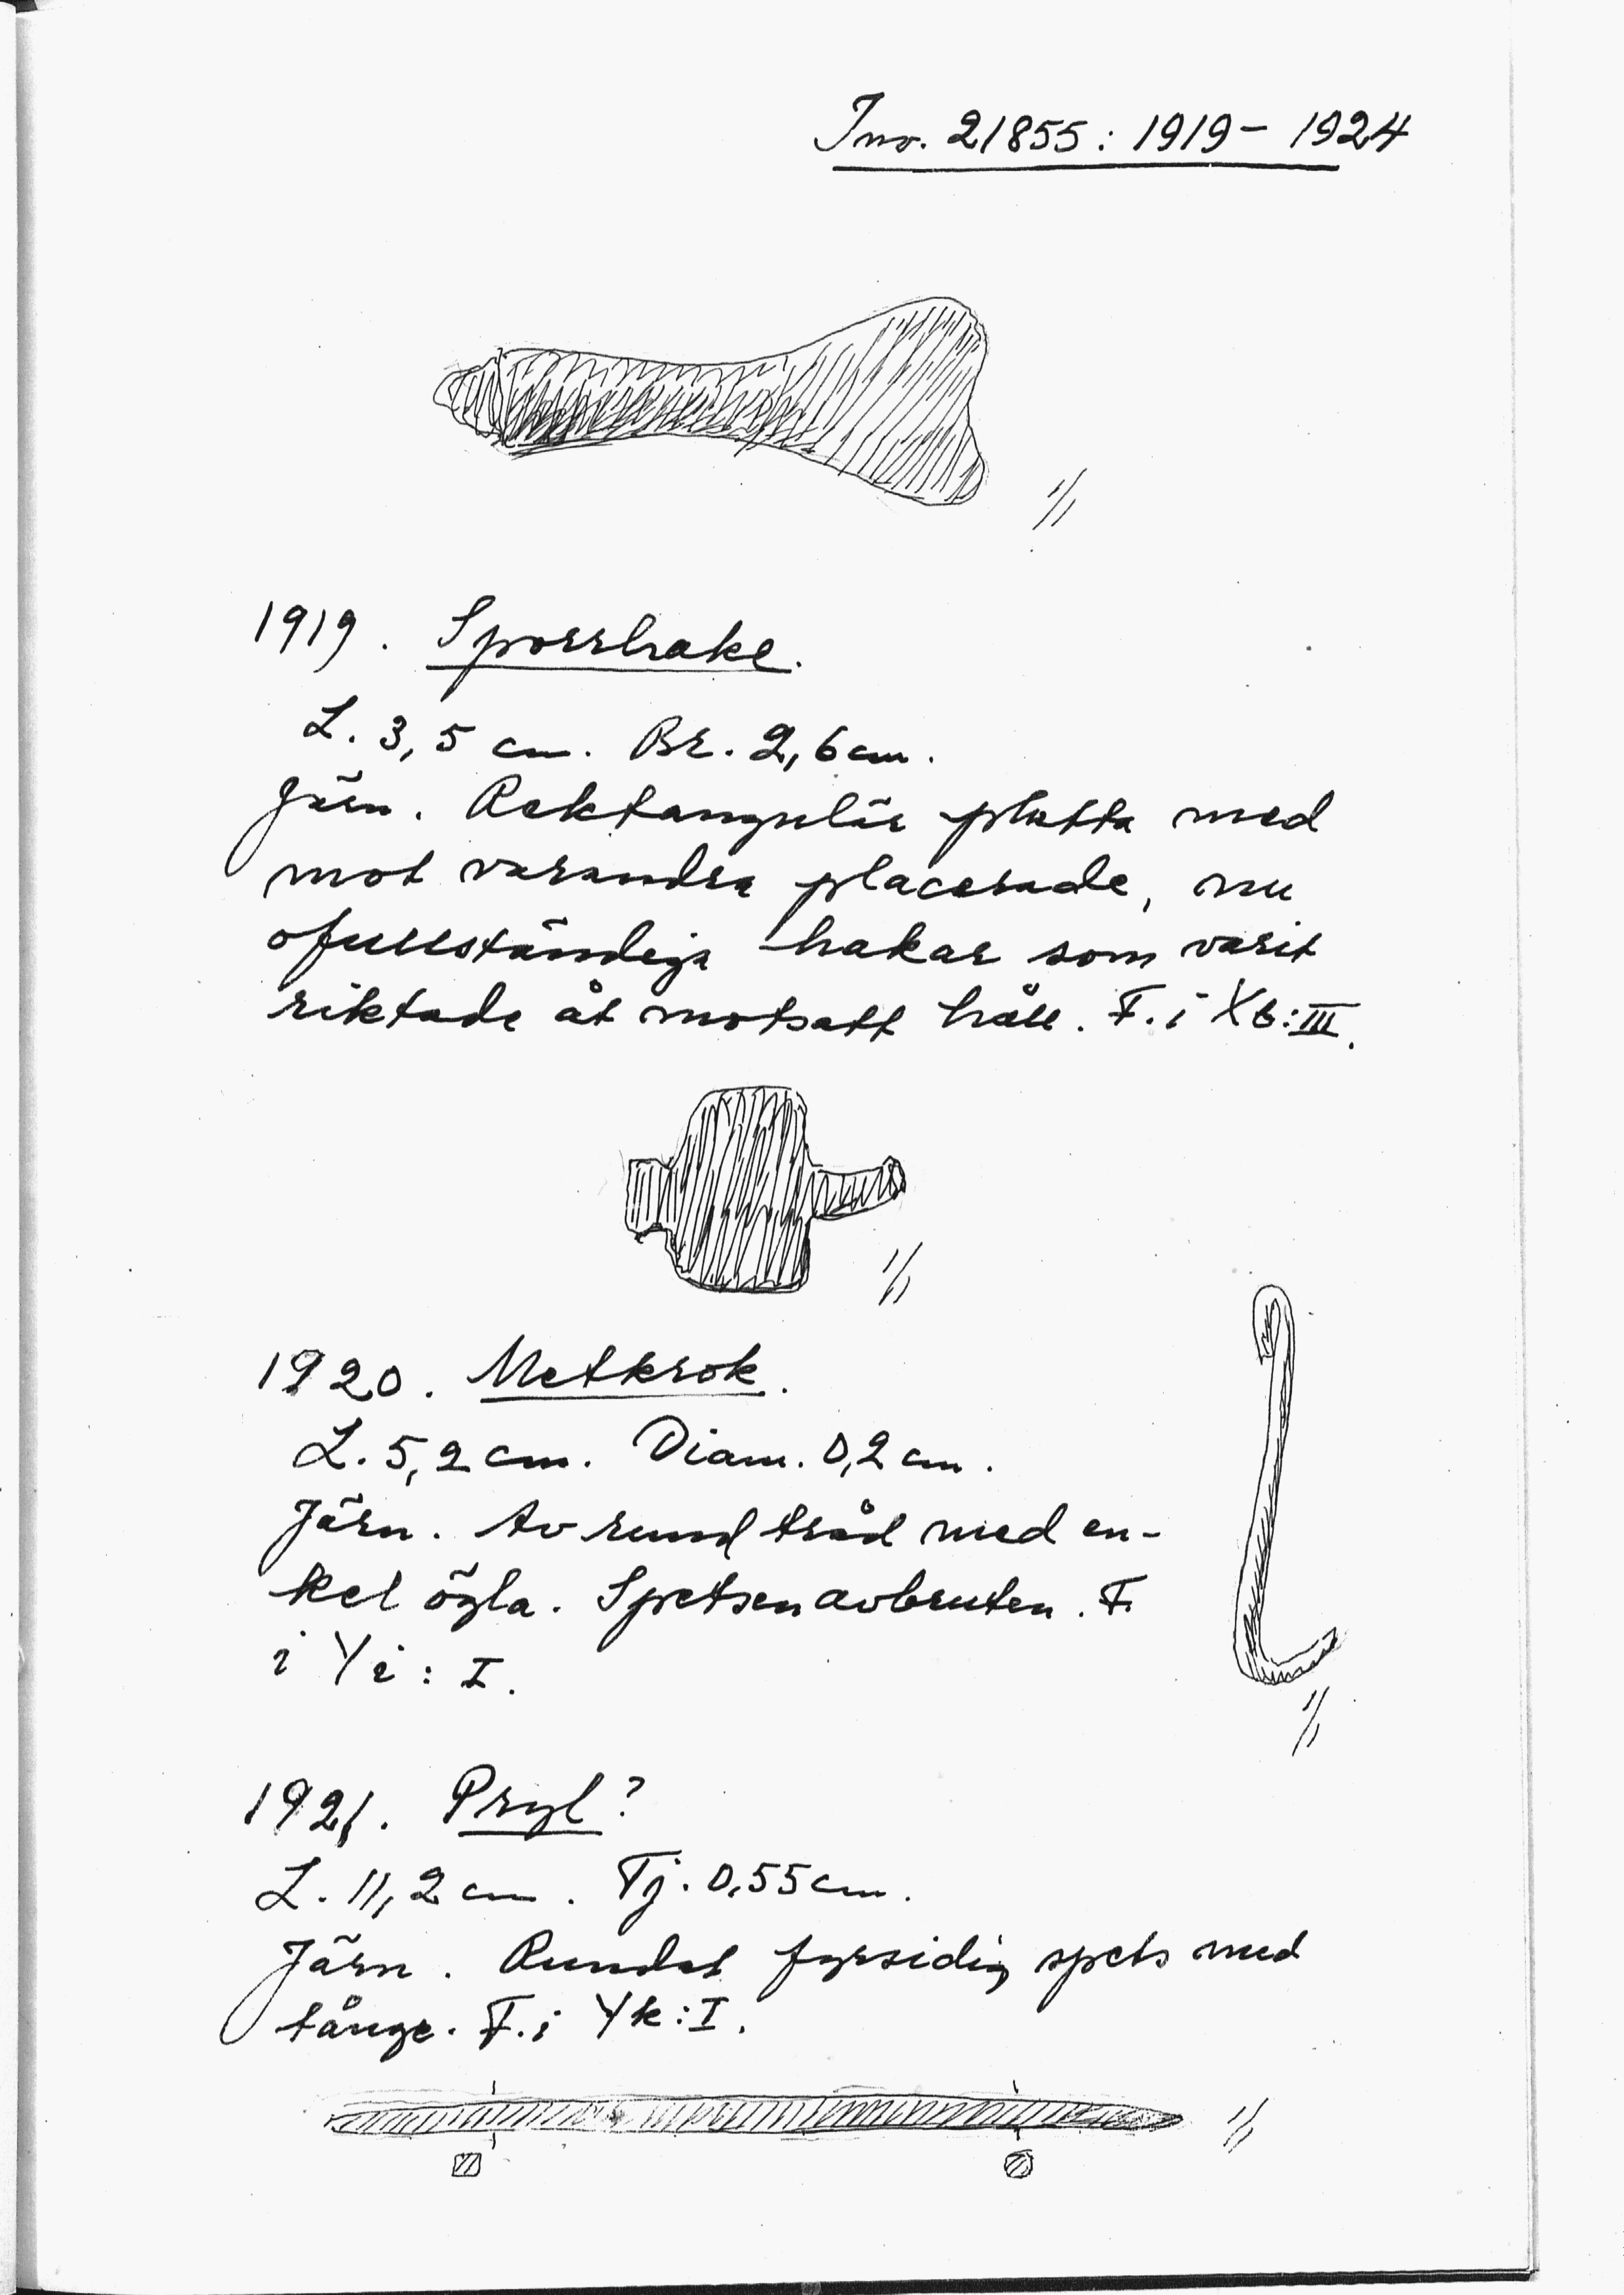 Inv. 21855: 1919 - 1924
1/1
1919. Sporrhake.
L. 3,5 cm. Br. 2,6 cm.
Järn. Rektangulär platta med
mot varandra placerade, nu
ofullständiga hakar som varit
riktade åt motsatt håll. F. i Xb:III.
1/1
1920. Metkrok.
L. 5,2 cm. Diam. 0,2 cm.
Järn. Av rund tråd med en-
kel ögla. Spetsen avbruten. F.
i Yi: I.
1/1
1921. Pryl?
L. 11,2 cm. Tj. 0,55 cm.
Järn. Rundat fyrsidig spets med
tånge. F. i Yk: I.
1/1